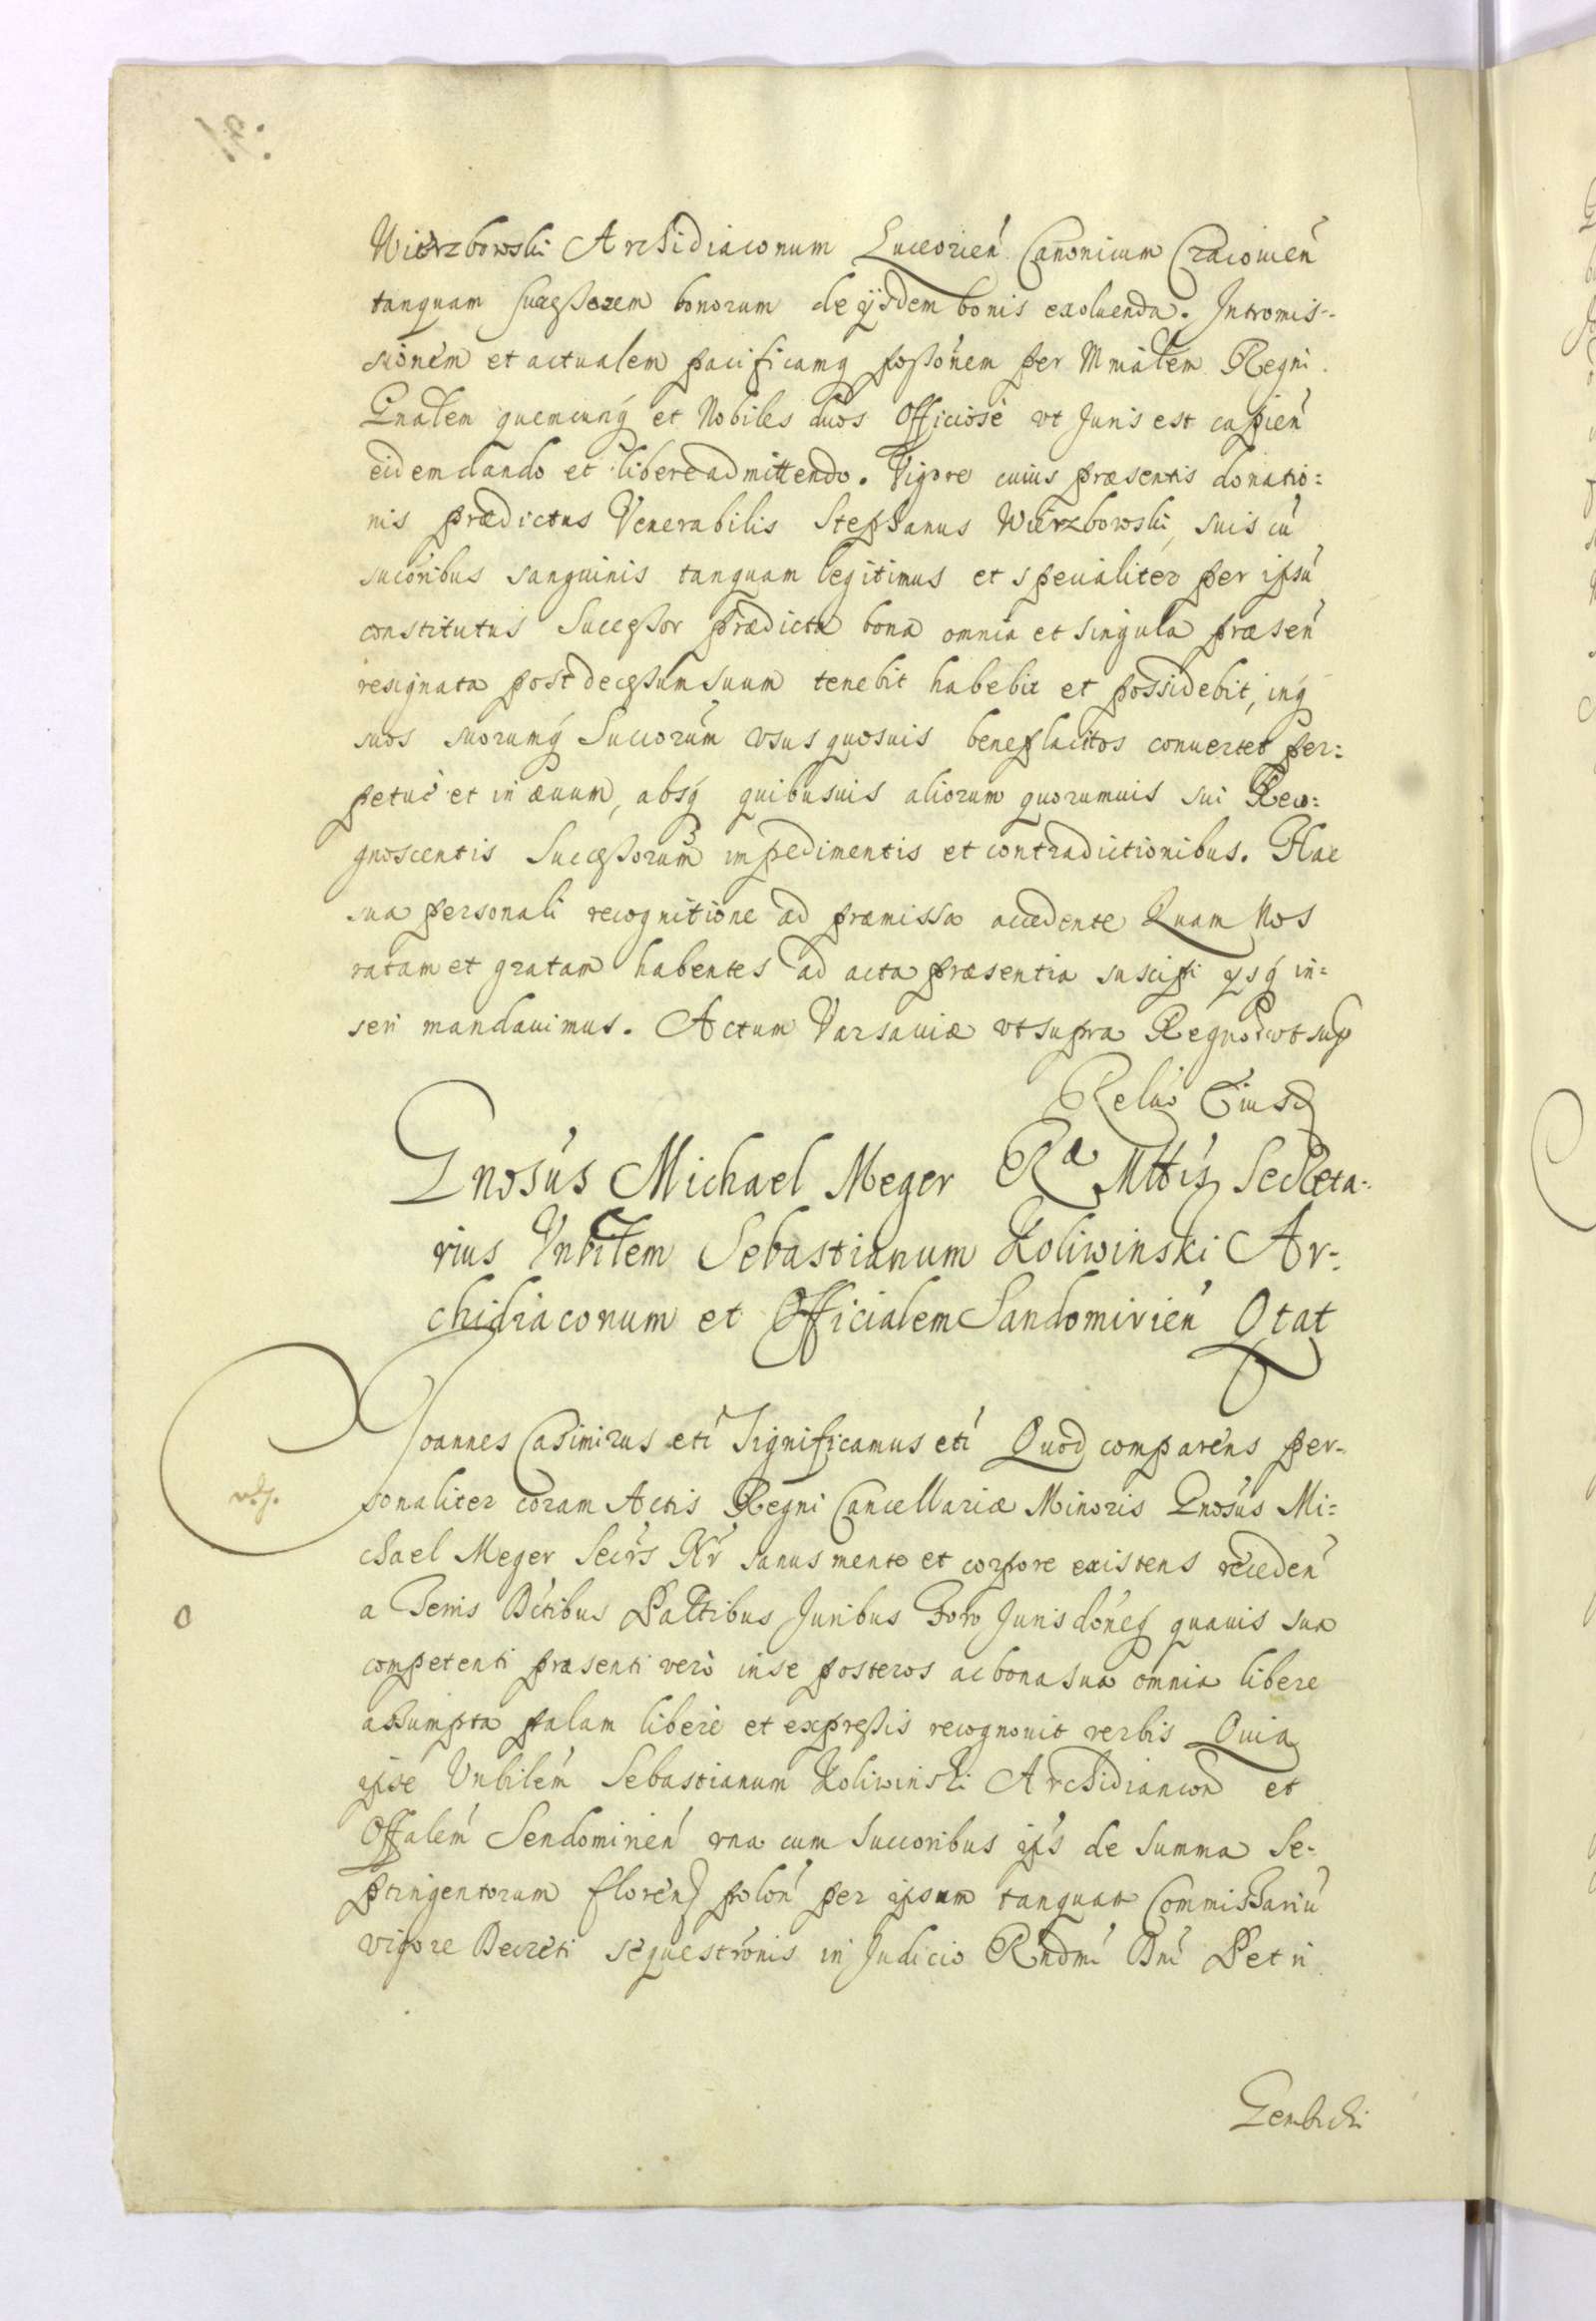 Wierzbowski Archidiaconum Luceorien Canonicum Cracouien
tanquam successorem bonorum de ijsdem bonis exoluenda. Intromis=
sionem et actualem pacificamq possonem per Mmialem Regni
Gnalem quemcunq et Nobiles duos Officiose vt Juris est capien
eidem dando et libere admittendo. Vigore cuius præsentis donatio=
nis prædictus Venerabilis Stephanus Wierzbowski, suis cu
sucoribus sanguinis tanquam legitimus et specialiter per ipsu
constitutus Successor prædicta bona omnia et singula præsen
resignata post decessum suum tenebit habebit et possidebit, inq
suos suorumq Succorum vsus quosuis beneplacitos conuertet per=
petuo et in æuum, absq quibusuis aliorum quorumuis sui Reco=
gnoscentis Successorum impedimentis et contradictionibus. Hac
sua personali recognitione ad præmissa accedente Quam Nos
ratam et gratam habentes ad acta præsentia suscipi ysq in=
seri mandauimus. Actum Varsauiæ vt supra Regnor vt sup
Relao Eiusd
Gnosus Michael Meger Ra Mttis Secreta=
rius Vnbilem Sebastianum Koliwinski Ar=
chidiaconum et Officialem Sandomirien Qtat
Joannes Casimirus eti Significamus eti Quod comparens per=
sonaliter coram Actis Regni Cancellariæ Minoris Gnosus Mi=
chael Meger Secrs Nr sanus mente et corpore existens receden
a Terris Dctibus Palttibus Juribus Foro Jurisdoneq quauis sua
competenti præsenti vero in se posteros ac bona sua omnia libere
assumpta palam libere et expressis recognouit verbis Quia
ipse Vnbilem Sebastianum Koliwinski Archidiancon et
Offalem Sendomirien vna cum succoribus ips de summa Se=
ptingentorum floren polon per ipsum tanquam Commissariu
vigore Decreti sequestronis in Judicio Rndmi Dni Petri
Gembicki